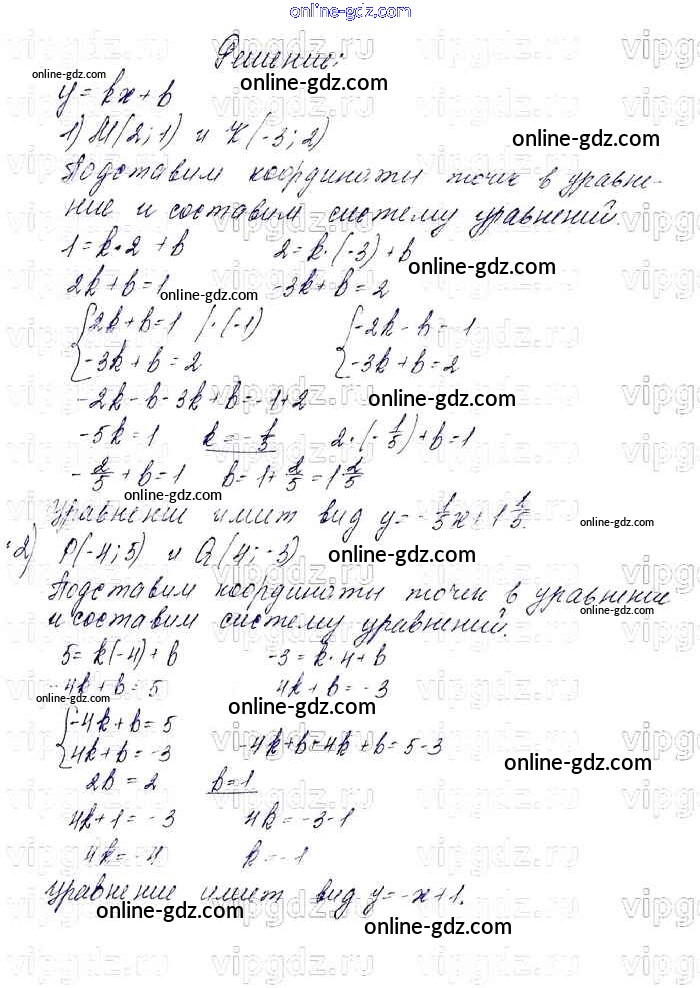 online-gdz.com
Решение:
online-gdz.com
online-gdz.com
y = kx + b
1) M(2; 1) и K(-3; 2)
online-gdz.com
Подставим координаты точек в уравне-
ние и составим систему уравнений.
1 = k·2 + b 2 = k·(-3) + b
online-gdz.com
2k + b = 1 -3k + b = 2
online-gdz.com
{2k + b = 1 |·(-1) {-2k - b = 1
-3k + b = 2 -3k + b = 2
-2k - b - 3k + b = -1 + 2
online-gdz.com
-5k = 1 k = -1/5 2·(-1/5) + b = 1
-2/5 + b = 1 b = 1 + 2/5 = 1 2/5
online-gdz.com
Уравнение имеет вид y = -1/5x + 1 1/5.
online-gdz.com
2) P(-4; 5) и Q(4; -3)
online-gdz.com
Подставим координаты точек в уравнение
online-gdz.com
и составим систему уравнений.
5 = k(-4) + b -3 = k·4 + b
-4k + b = 5 4k + b = -3
online-gdz.com
online-gdz.com
{-4k + b = 5
4k + b = -3 -4k + b + 4k + b = 5 - 3
online-gdz.com
2b = 2 b = 1
4k + 1 = -3 4k = -3 - 1
4k = -4 k = -1
уравнение имеет вид y = -x + 1.
online-gdz.com
online-gdz.com
vipgdz.ru